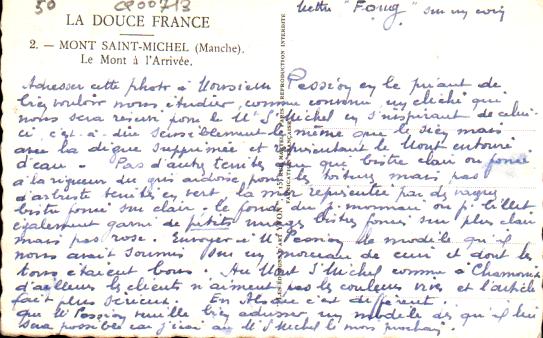 50 CP00713
LA DOUCE FRANCE
2. — MONT SAINT-MICHEL (Manche).
Le Mont à l'Arrivée.
lettre "Foug" sur un coin
REPRODUCTION INTERDITE
FABRICATION FRANÇAISE
Adresser cette photo à Monsieur Pession en le priant de
bien vouloir nous étudier, comme convenu, un cliché qui
nous sera réservé pour le Mt St Michel en s'inspirant de celui-
ci, c'est à dire sensiblement le même que le sien mais
avec la digue supprimée et représentant le Mont entouré
d'eau. Pas d'autres teintes que bistre clair ou foncé
à la rigueur du gris ardoise pour les toitures mais pas
d'arbres teintés en vert la mer représentée par des vagues
bistre foncé sur clair le fond du p. monnaie ou p. billet
également garni de petits bistres foncés sur plus clair
mais pas rose. Envoyer à M Pession le modèle qu'il
nous avait soumis sur un morceau de cuir et dont les
tons étaient bons. Au Mont St Michel comme à Chamonix
d'ailleurs les clients n'aiment pas les couleurs vives et l'article
fait plus sérieux. En Alsace c'est différent.
que M Pession veuille bien adresser un modèle dès qu'il lui
sera possible car j'irai au Mt St Michel le mois prochain.